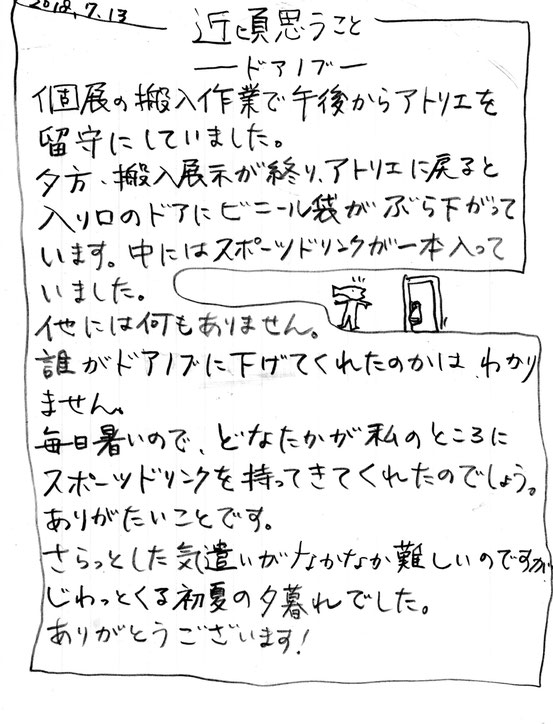 2018.7.13
近頃思うこと
―ドアノブ―
個展の搬入作業で午後からアトリエを
留守にしていました。
夕方、搬入展示が終り、アトリエに戻ると
入り口のドアにビニール袋がぶら下がって
います。中にはスポーツドリンクが一本入って
いました。
他には何もありません。
誰がドアノブに下げてくれたのかは わかり
ません。
毎日暑いので、どなたかが私のところに
スポーツドリンクを持ってきてくれたのでしょう。
ありがたいことです。
さらっとした気遣いがなかなか難しいのですが
じわっとくる初夏の夕暮れでした。
ありがとうございます!